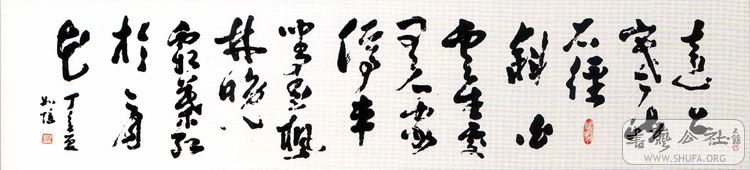 遠上
寒山
石徑
斜白
雲生處
有人家
停車
坐愛楓
林晚
霜葉紅
於二月
花
丁亥夏
書藺公社
WWW.SHUFA.ORG